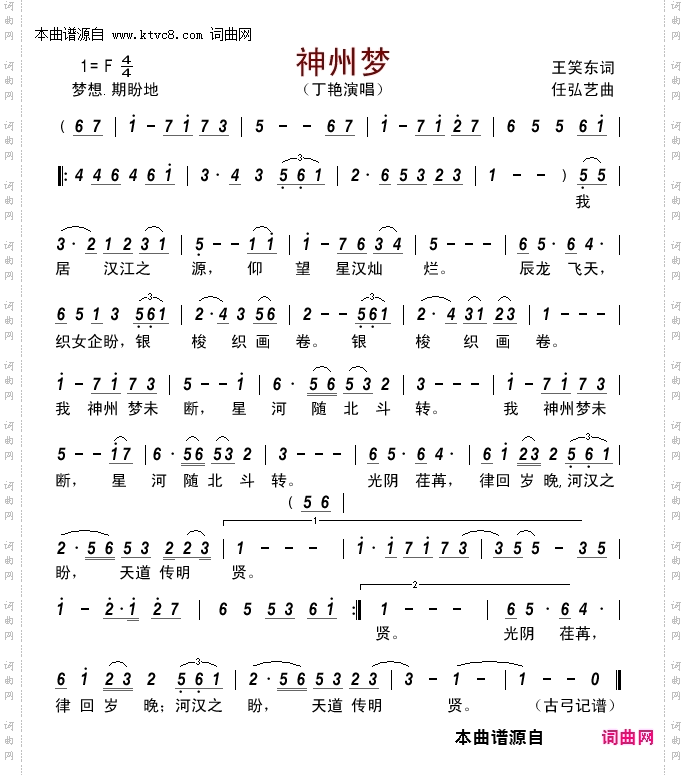 本曲谱源自 www.ktvc8.com 词曲网
神州梦
1= F 4/4
王笑东词
梦想.期盼地
（丁艳演唱）
任弘艺曲
( 6 7 | 1 - 7 1 7 3 | 5 - - 6 7 | 1 - 7 1 2 7 | 6 5 5 6 1 |
|: 4 4 6 4 6 1 | 3· 4 3 5 6 1 | 2· 6 5 3 2 3 | 1 - - ) 5 5 |
我
3· 2 1 2 3 1 | 5 - - 1 1 | 1 - 7 6 3 4 | 5 - - - | 6 5· 6 4· |
居 汉江之 源， 仰 望 星汉灿 烂。 辰龙 飞天，
6 5 1 3 5 6 1 | 2· 4 3 5 6 | 2 - - 5 6 1 | 2· 4 3 1 2 3 | 1 - - - |
织女企盼，银 梭 织 画 卷。 银 梭 织 画 卷。
1 - 7 1 7 3 | 5 - - 1 | 6· 5 6 5 3 2 | 3 - - - | 1 - 7 1 7 3 |
我 神州 梦未 断， 星 河 随 北 斗 转。 我 神州梦未
5 - - 1 7 | 6· 5 6 5 3 2 | 3 - - - | 6 5· 6 4· | 6 1 2 3 2 5 6 1 |
断， 星 河 随 北 斗 转。 光阴 荏苒， 律回 岁 晚,河汉之
( 5 6 |
1
2· 5 6 5 3 2 2 3 | 1 - - - | 1· 1 7 1 7 3 | 3 5 5 - - 3 5 |
盼， 天道 传明 贤。
2
1 - 2· 1 2 7 | 6 5 5 3 6 1 :| 1 - - - | 6 5· 6 4· |
贤。 光阴 荏苒，
6 1 2 3 2 5 6 1 | 2· 5 6 5 3 2 3 | 1 - - - | 1 - - 0 ‖
律 回 岁 晚；河汉之 盼， 天道 传明 贤。 （古弓记谱）
本曲谱源自 词曲网